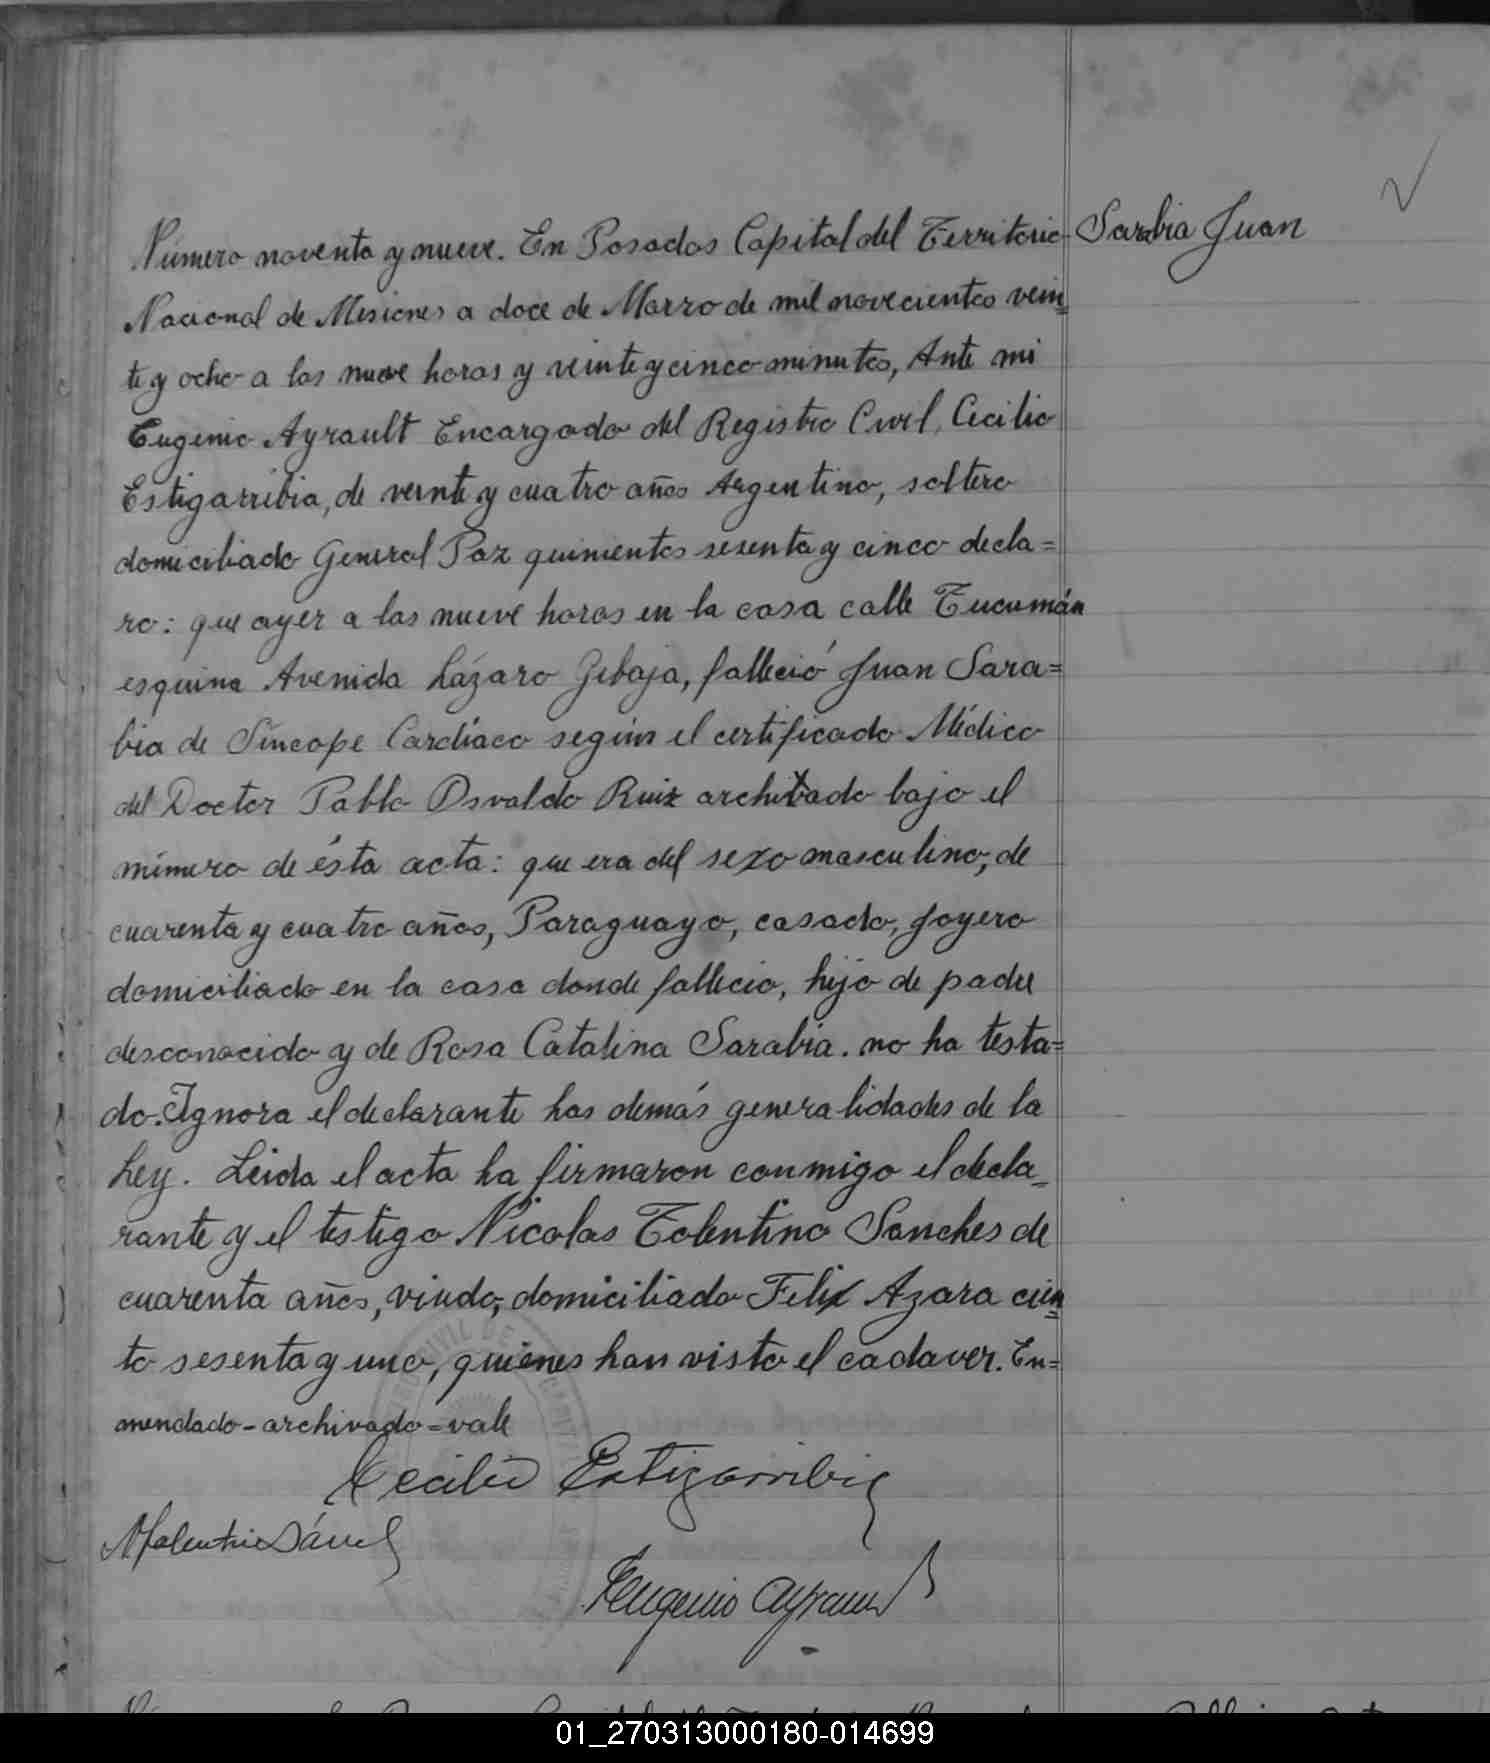 Número noventa y nueve. En Posadas Capital del Territorio
Sarabia Juan
Nacional de Misiones a doce de Marzo de mil novecientos vein=
te y ocho a las nueve horas y veinte y cinco minutos, Ante mi
Eugenio Ayrault Encargado del Registro Civil, Cecilio
Estigarribia, de veinte y cuatro años Argentino, soltero
domiciliado General Paz quinientos sesenta y cinco decla=
ro: que ayer a las nueve horas en la casa calle Tucumán
esquina Avenida Lázaro Gibaja, falleció Juan Sara=
bia de Síncope Cardíaco según el certificado Médico
del Doctor Pablo Osvaldo Ruiz archivado bajo el
número de ésta acta: que era del sexo masculino, de
cuarenta y cuatro años, Paraguayo, casado, Joyero
domiciliado en la casa donde fallecio, hijo de padre
desconocido y de Rosa Catalina Sarabia. no ha testa=
do. Ignora el declarante las demás generalidades de la
Ley. Leida el acta la firmaron conmigo el decla_
rante y el testigo Nicolas Tolentino Sanches de
cuarenta años, viudo, domiciliado Felix Azara cien=
to sesenta y uno, quienes han visto el cadaver. En=
mendado-archivado=vale
Cecilio Estigarribia
Eugenio Ayrault
01_270313000180-014699